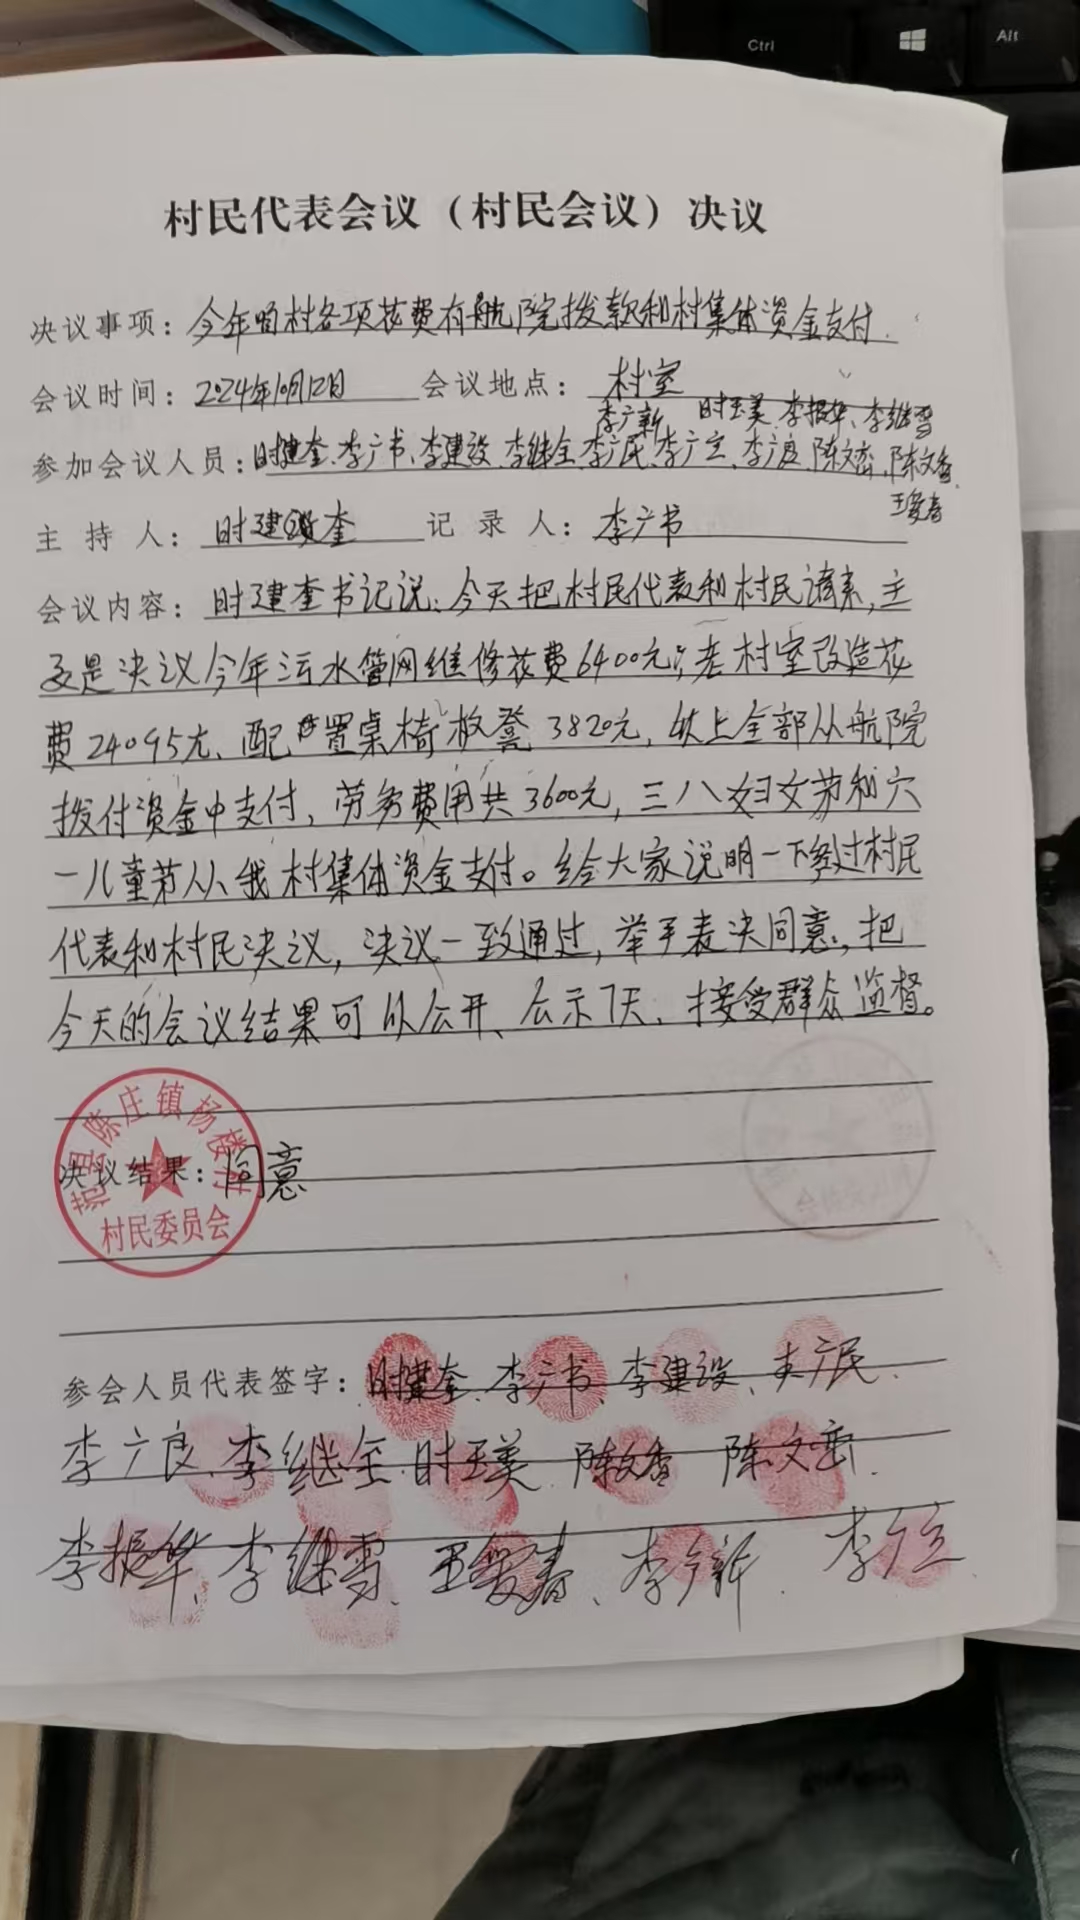 Ctrl
Alt
村民代表会议（村民会议）决议
决议事项：今年咱村各项花费有航院拨款和村集体资金支付.
会议时间：2024年10月12日 会议地点：村室
李广新 时玉美、李振华、李继雪
参加会议人员：时建奎、李广书、李建设、李继全、李广民、李广立、李广良、陈文峦、陈文香、
王爱春
主持人：时建奎 记录人：李广书
会议内容：时建奎书记说：今天把村民代表和村民请来，主
要是决议今年污水管网维修花费6400元；老村室改造花
费24095元、配置桌椅板凳3820元，以上全部从航院
拨付资金中支付、劳务费用共3600元，三八妇女节和六
一儿童节从我村集体资金支付。给大家说明一下经过村民
代表和村民决议，决议一致通过，举手表决同意，把
今天的会议结果可以公开、公示7天、接受群众监督。
范县陈庄镇杨楼村
村民委员会
决议结果：同意
参会人员代表签字：时建奎、李广书、李建设、李广民、
李广良、李继全、时玉美、陈文香、陈文峦、
李振华、李继雪、王爱春、李广新、李广立、